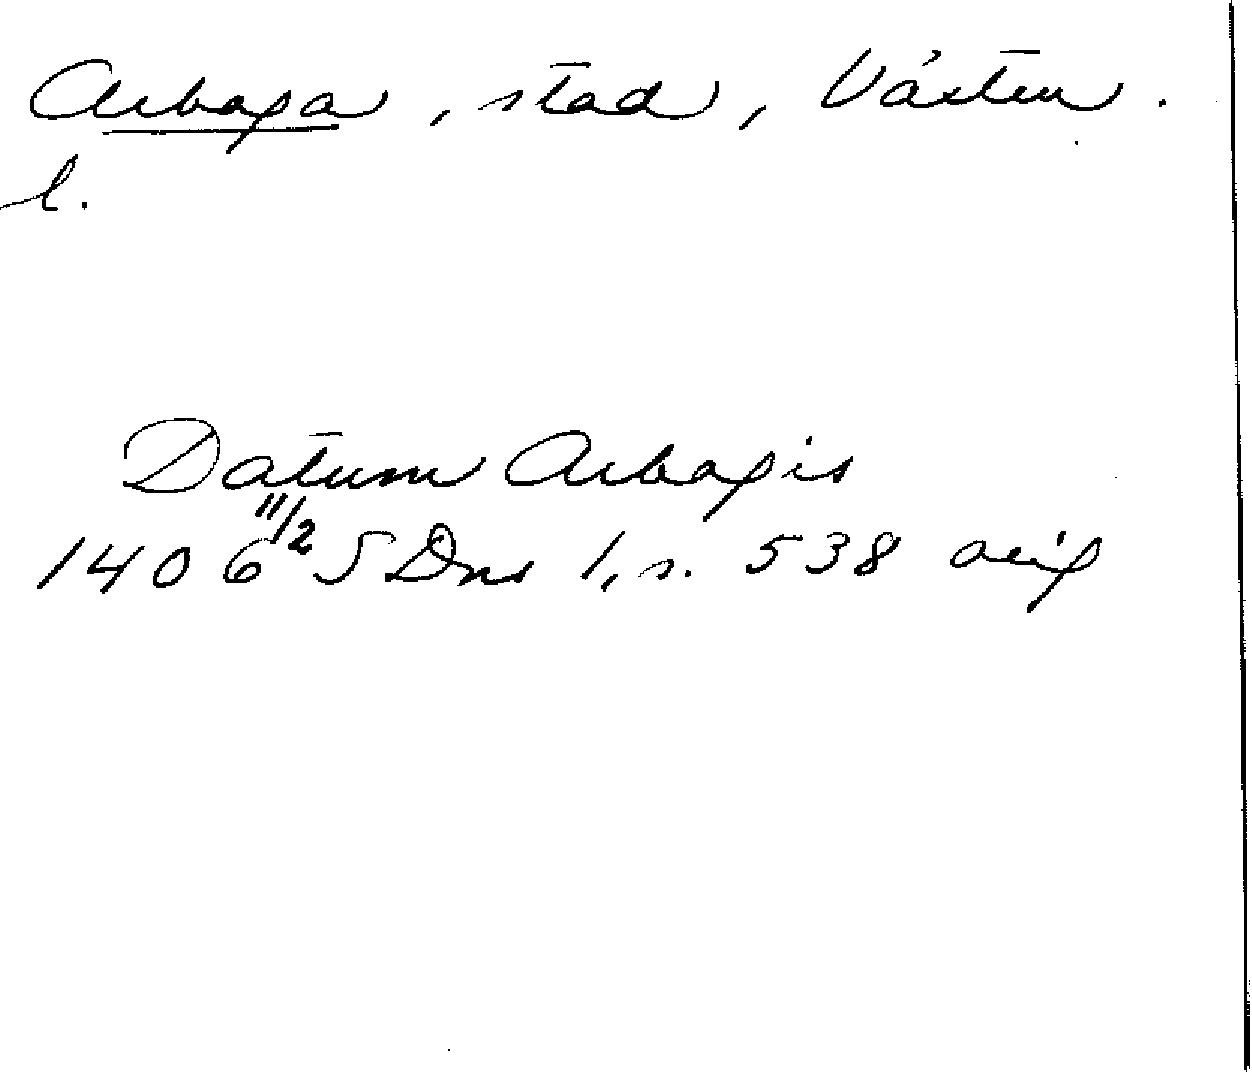 Arboga, stad, Västm.
l.
Datum Arbogis
1406 11/2 SDns 1, s. 538 orig